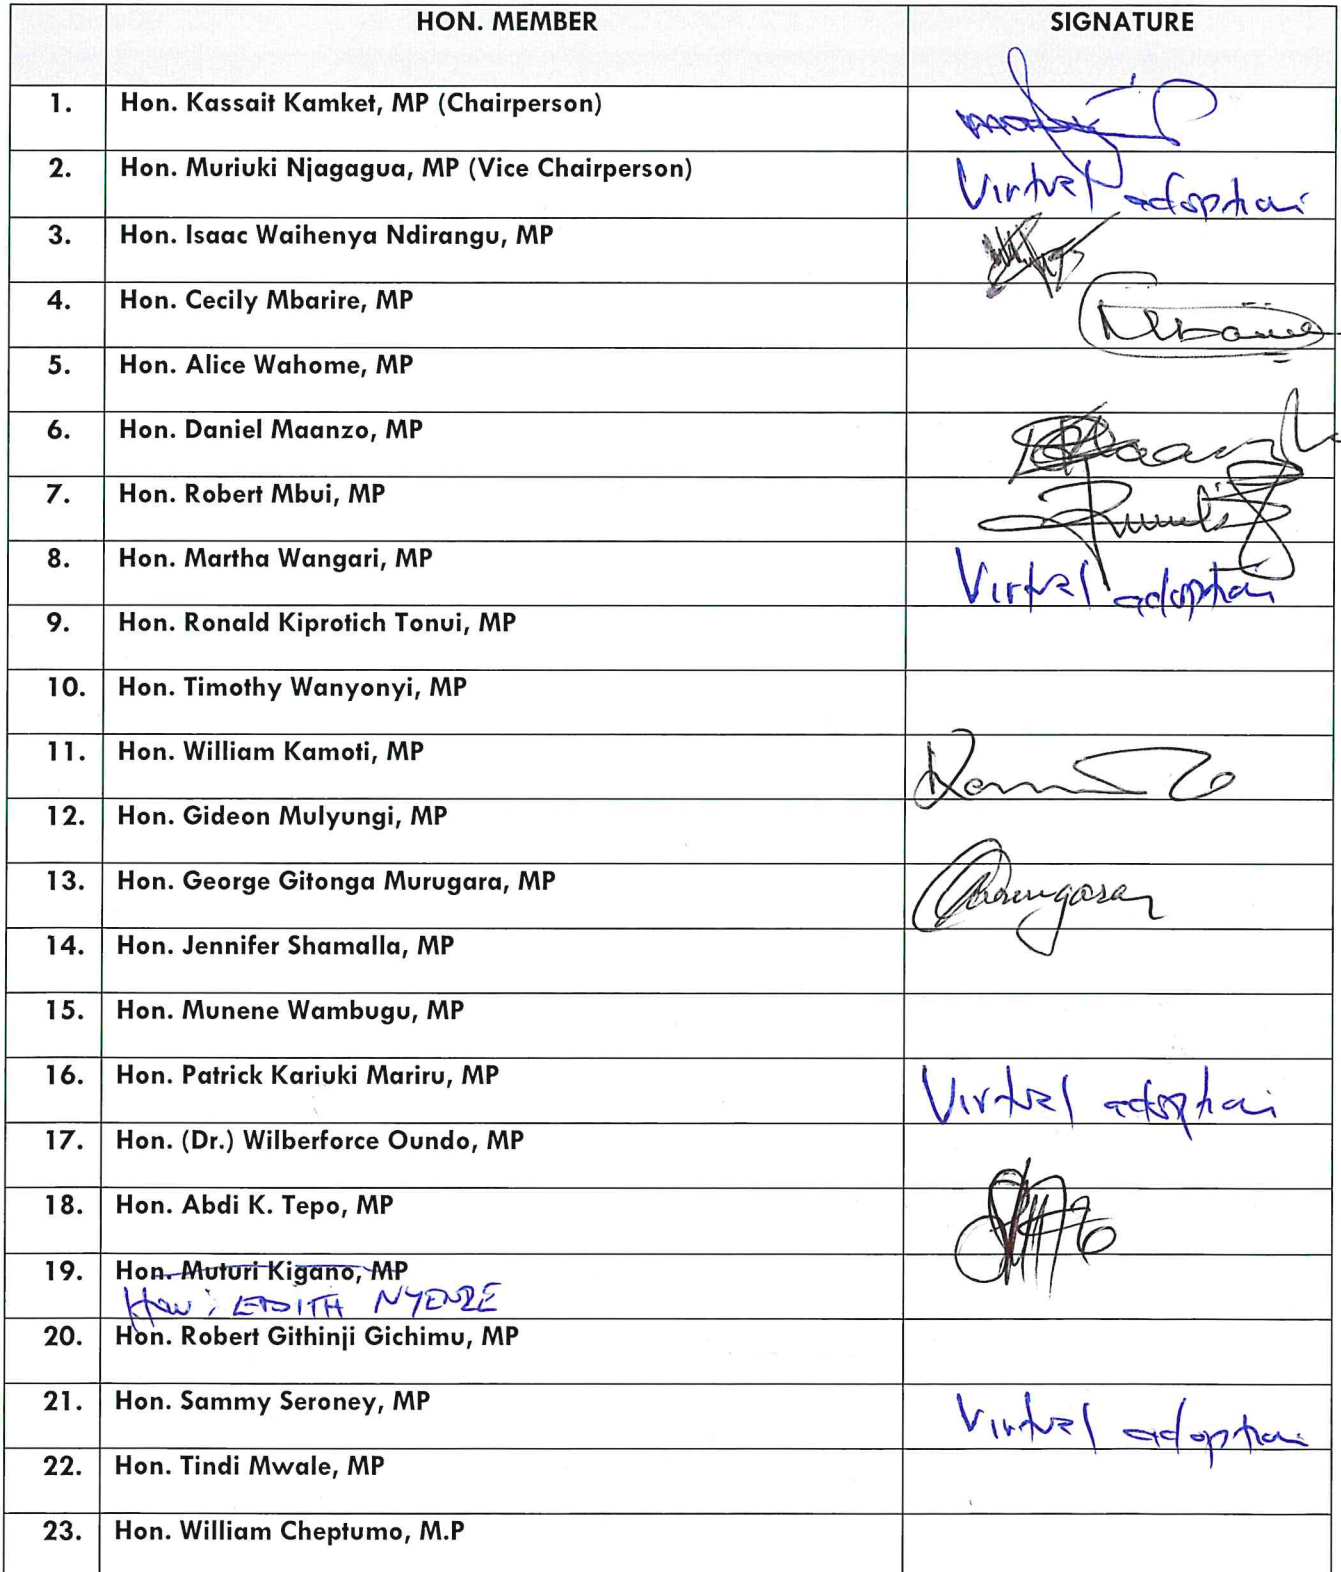 HON. MEMBER SIGNATURE
1. Hon. Kassait Kamket, MP (Chairperson)
2. Hon. Muriuki Njagagua, MP (Vice Chairperson) Virtual adoption
3. Hon. Isaac Waihenya Ndirangu, MP
4. Hon. Cecily Mbarire, MP
5. Hon. Alice Wahome, MP
6. Hon. Daniel Maanzo, MP
7. Hon. Robert Mbui, MP
8. Hon. Martha Wangari, MP Virtual adoption
9. Hon. Ronald Kiprotich Tonui, MP
10. Hon. Timothy Wanyonyi, MP
11. Hon. William Kamoti, MP
12. Hon. Gideon Mulyungi, MP
13. Hon. George Gitonga Murugara, MP
14. Hon. Jennifer Shamalla, MP
15. Hon. Munene Wambugu, MP
16. Hon. Patrick Kariuki Mariru, MP Virtual adoption
17. Hon. (Dr.) Wilberforce Oundo, MP
18. Hon. Abdi K. Tepo, MP
19. Hon. Muturi Kigano, MP
Hon: EDITH NYENZE
20. Hon. Robert Githinji Gichimu, MP
21. Hon. Sammy Seroney, MP Virtual adoption
22. Hon. Tindi Mwale, MP
23. Hon. William Cheptumo, M.P